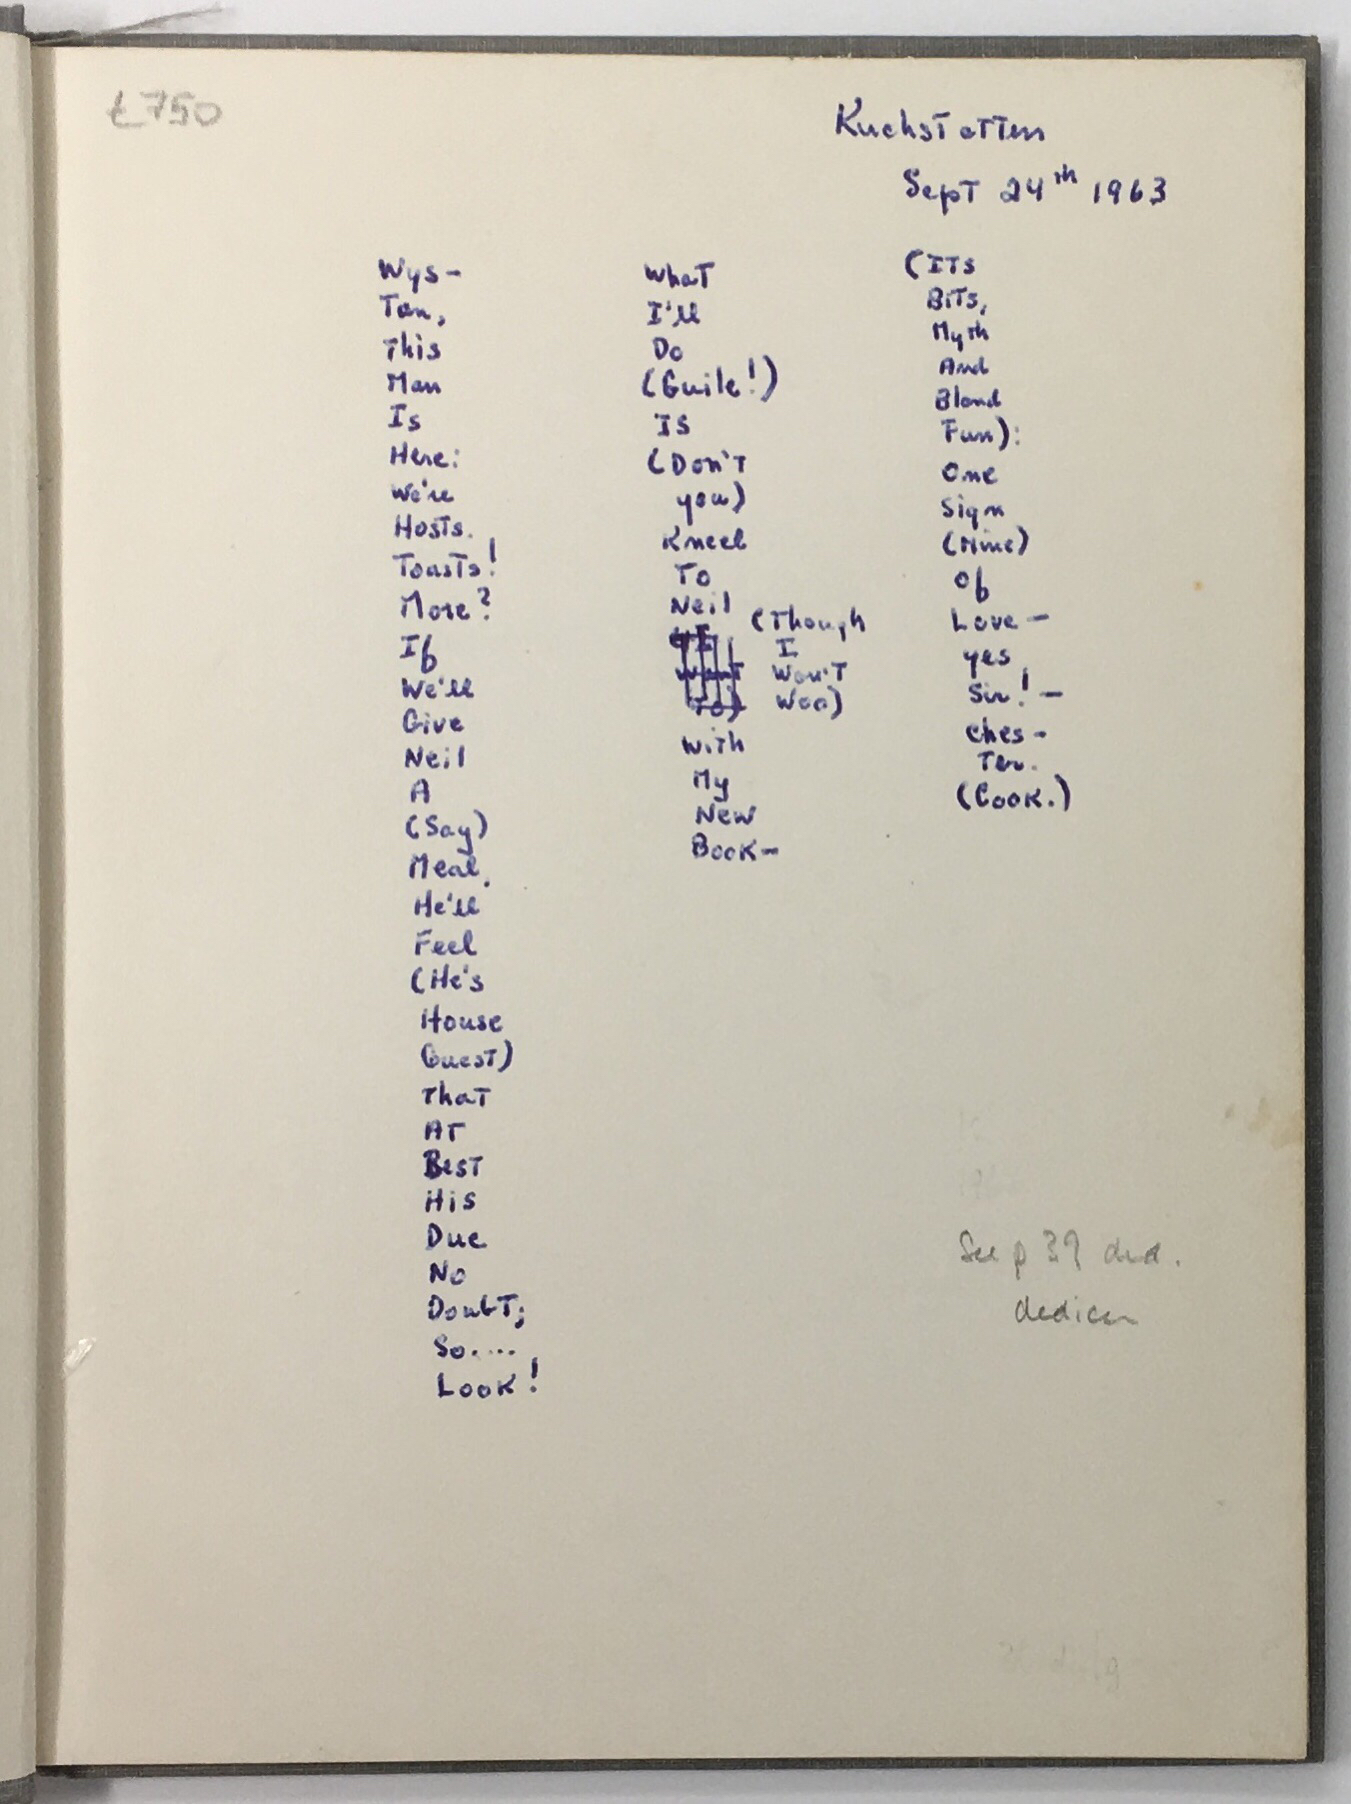 £750
Kuchstatten
Sept 24th 1963
Wys-
Tan,
This
Man
Is
Here:
We're
Hosts.
Toasts!
More?
If
We'll
Give
Neil
A
(Say)
Meal,
He'll
Feel
(He's
House
Guest)
That
At
Best
His
Due
No
Doubt;
So....
Look!
What
I'll
Do
(Guile!)
Is
(Don't
you)
Kneel
To
Neil
(Though
I
Won't
Woo)
With
My
New
Book-
(Its
Bits,
Myth
And
Bland
Fun):
One
Sign
(Mine)
Of
Love-
yes
Sir!-
Ches-
Ter.
(Cook.)
See p 39 ded.